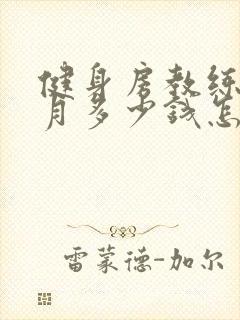 健身房教练
月多少钱怎
雷蒙德-加尔